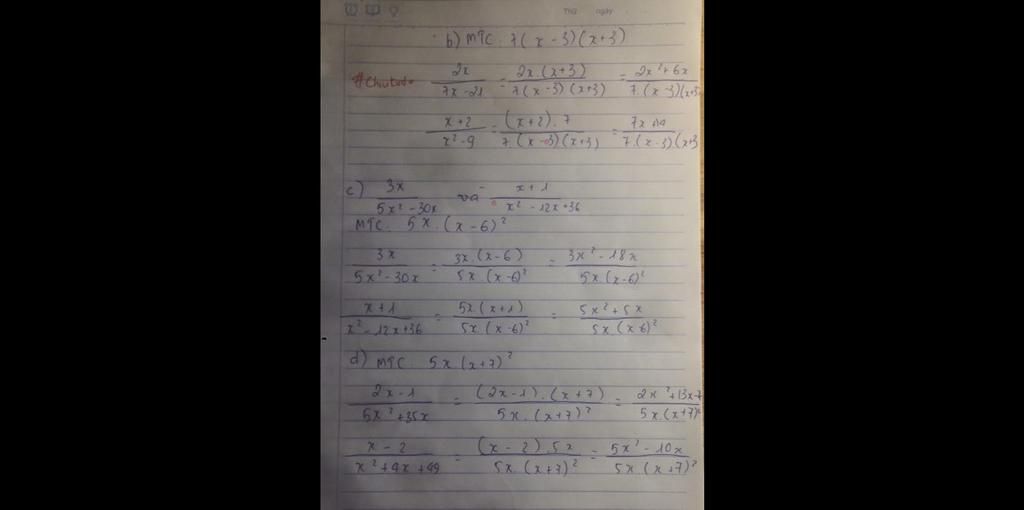 Thứ ngày
b) MTC: 7(x-3)(x+3)
2x/(7x-21) = 2x.(x+3)/(7(x-3)(x+3)) = (2x²+6x)/(7.(x-3)(x+3
(x+2)/(x²-9) = (x+2).7/(7.(x-3)(x+3)) = (7x+14)/(7.(x-3)(x+3
c) 3x/(5x²-30x) và (x+1)/(x²-12x+36)
MTC: 5x.(x-6)²
3x/(5x²-30x) = 3x.(x-6)/(5x(x-6)²) = (3x²-18x)/(5x(x-6)²)
(x+1)/(x²-12x+36) = 5x(x+1)/(5x.(x-6)²) = (5x²+5x)/(5x(x-6)²)
d) MTC: 5x(x+7)²
(2x-1)/(5x²+35x) = (2x-1).(x+7)/(5x.(x+7)²) = (2x²+13x-7)/(5x.(x+7)²)
(x-2)/(x²+4x+49) = (x-2).5x/(5x.(x+7)²) = (5x²-10x)/(5x(x+7)²)